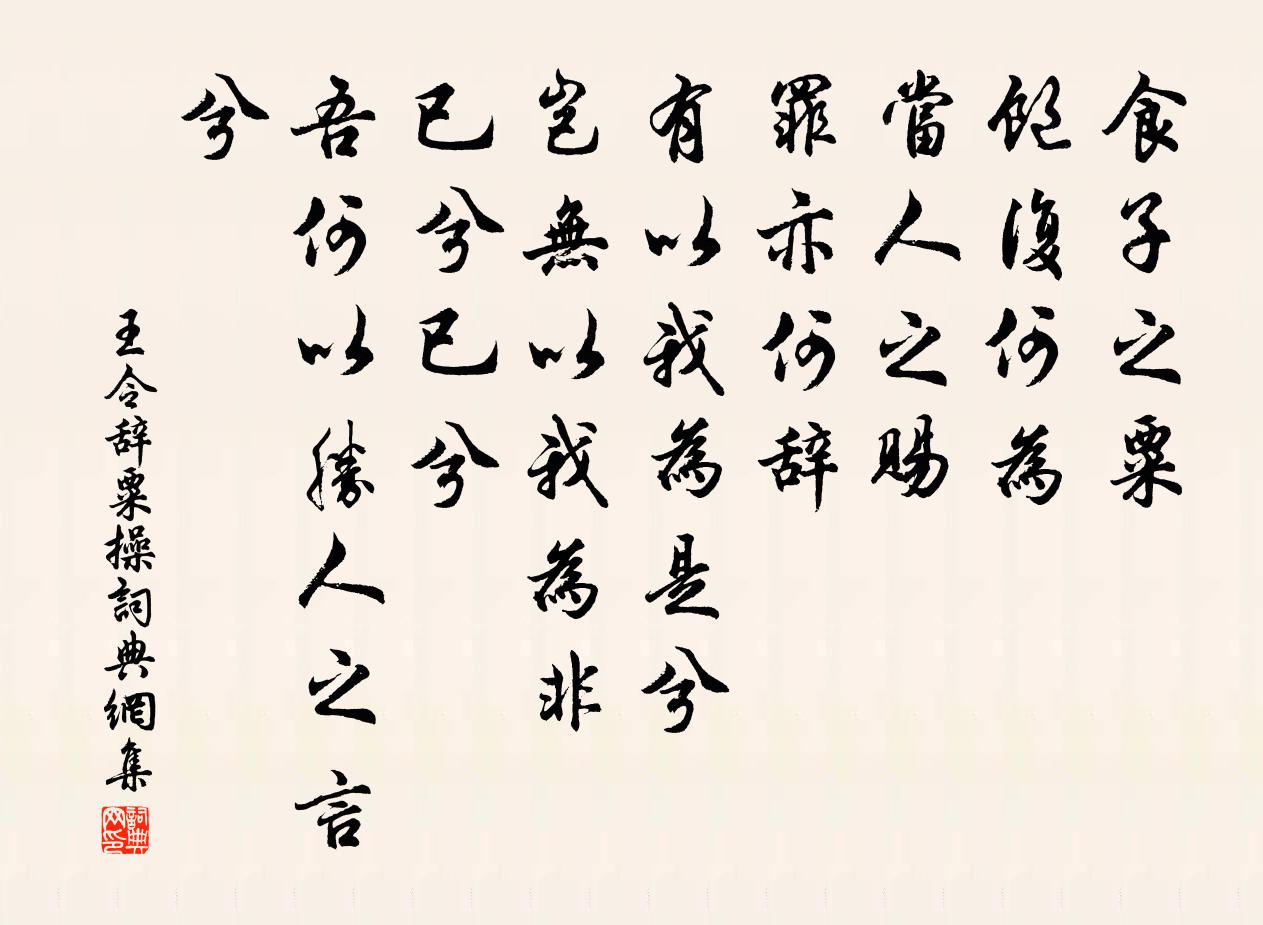 食子之粟
飽復何為
當人之賜
罪亦何辞
有以我為是兮
豈無以我為非
已兮已兮
吾何以勝人之言
兮
王令辞粟操詞典網集
詞典
网印